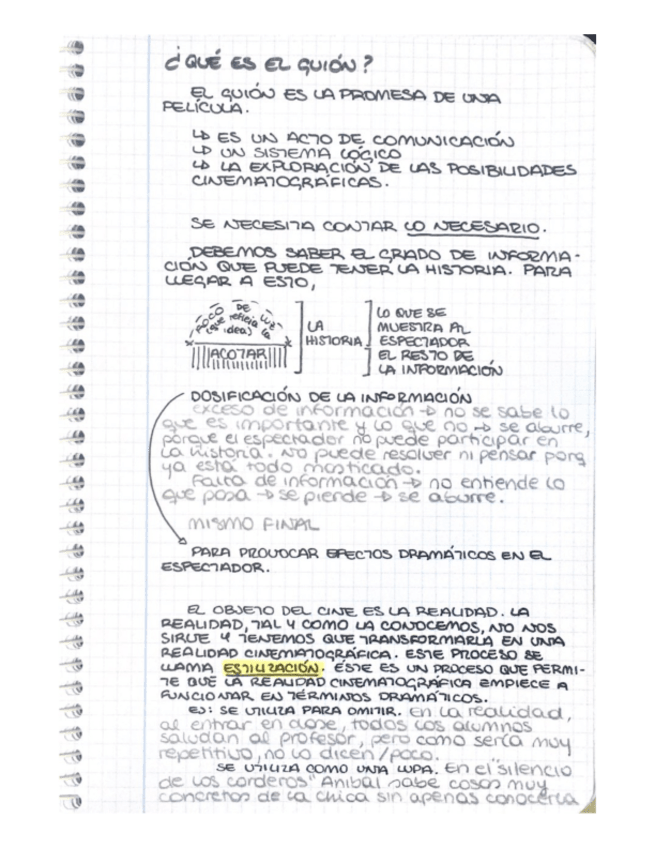 ¿QUÉ ES EL GUIÓN?
EL GUIÓN ES LA PROMESA DE UNA
PELÍCULA.
↳ ES UN ACTO DE COMUNICACIÓN
↳ UN SISTEMA LÓGICO
↳ LA EXPLORACIÓN DE LAS POSIBILIDADES
CINEMATOGRÁFICAS.
SE NECESITA CONTAR LO NECESARIO.
DEBEMOS SABER EL GRADO DE INFORMA-
CIÓN QUE PUEDE TENER LA HISTORIA. PARA
LLEGAR A ESTO,
POCO DE LUZ
(que refleja la
idea)
ACOTAR
LA
HISTORIA
LO QUE SE
MUESTRA AL
ESPECTADOR
EL RESTO DE
LA INFORMACIÓN
DOSIFICACIÓN DE LA INFORMACIÓN
exceso de información → no se sabe lo
que es importante y lo que no → se aburre,
porque el espectador no puede participar en
la historia. No puede resolver ni pensar porq
ya está todo masticado.
Falta de información → no entiende lo
que pasa → se pierde → se aburre.
MISMO FINAL
PARA PROVOCAR EFECTOS DRAMÁTICOS EN EL
ESPECTADOR.
EL OBJETO DEL CINE ES LA REALIDAD. LA
REALIDAD, TAL Y COMO LA CONOCEMOS, NO NOS
SIRVE Y TENEMOS QUE TRANSFORMARLA EN UNA
REALIDAD CINEMATOGRÁFICA. ESTE PROCESO SE
LLAMA ESTILIZACIÓN. ESTE ES UN PROCESO QUE PERMI-
TE QUE LA REALIDAD CINEMATOGRÁFICA EMPIECE A
FUNCIONAR EN TÉRMINOS DRAMÁTICOS.
EJ: SE UTILIZA PARA OMITIR. En la realidad,
al entrar en clase, todos los alumnos
saludan al profesor, pero como sería muy
repetitivo, no lo dicen/poco.
SE UTILIZA COMO UNA LUPA. En el "silencio
de los corderos" Anibal sabe cosas muy
concretas de la chica sin apenas conocerla